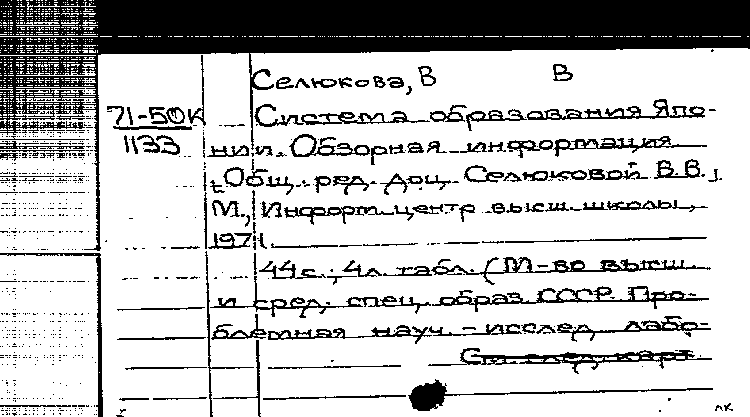 Селюкова, В В
71-50К Система образования Япо-
1133 нии. Обзорная информация.
[Общ. ред. доц. Селюковой В.В.]
М., Информ. центр высш. школы,
1971.
44с.; 4л. табл. (М-во высш.
и сред. спец. образ. СССР. Про-
блемная науч.-исслед. лабо-
См. след. карт